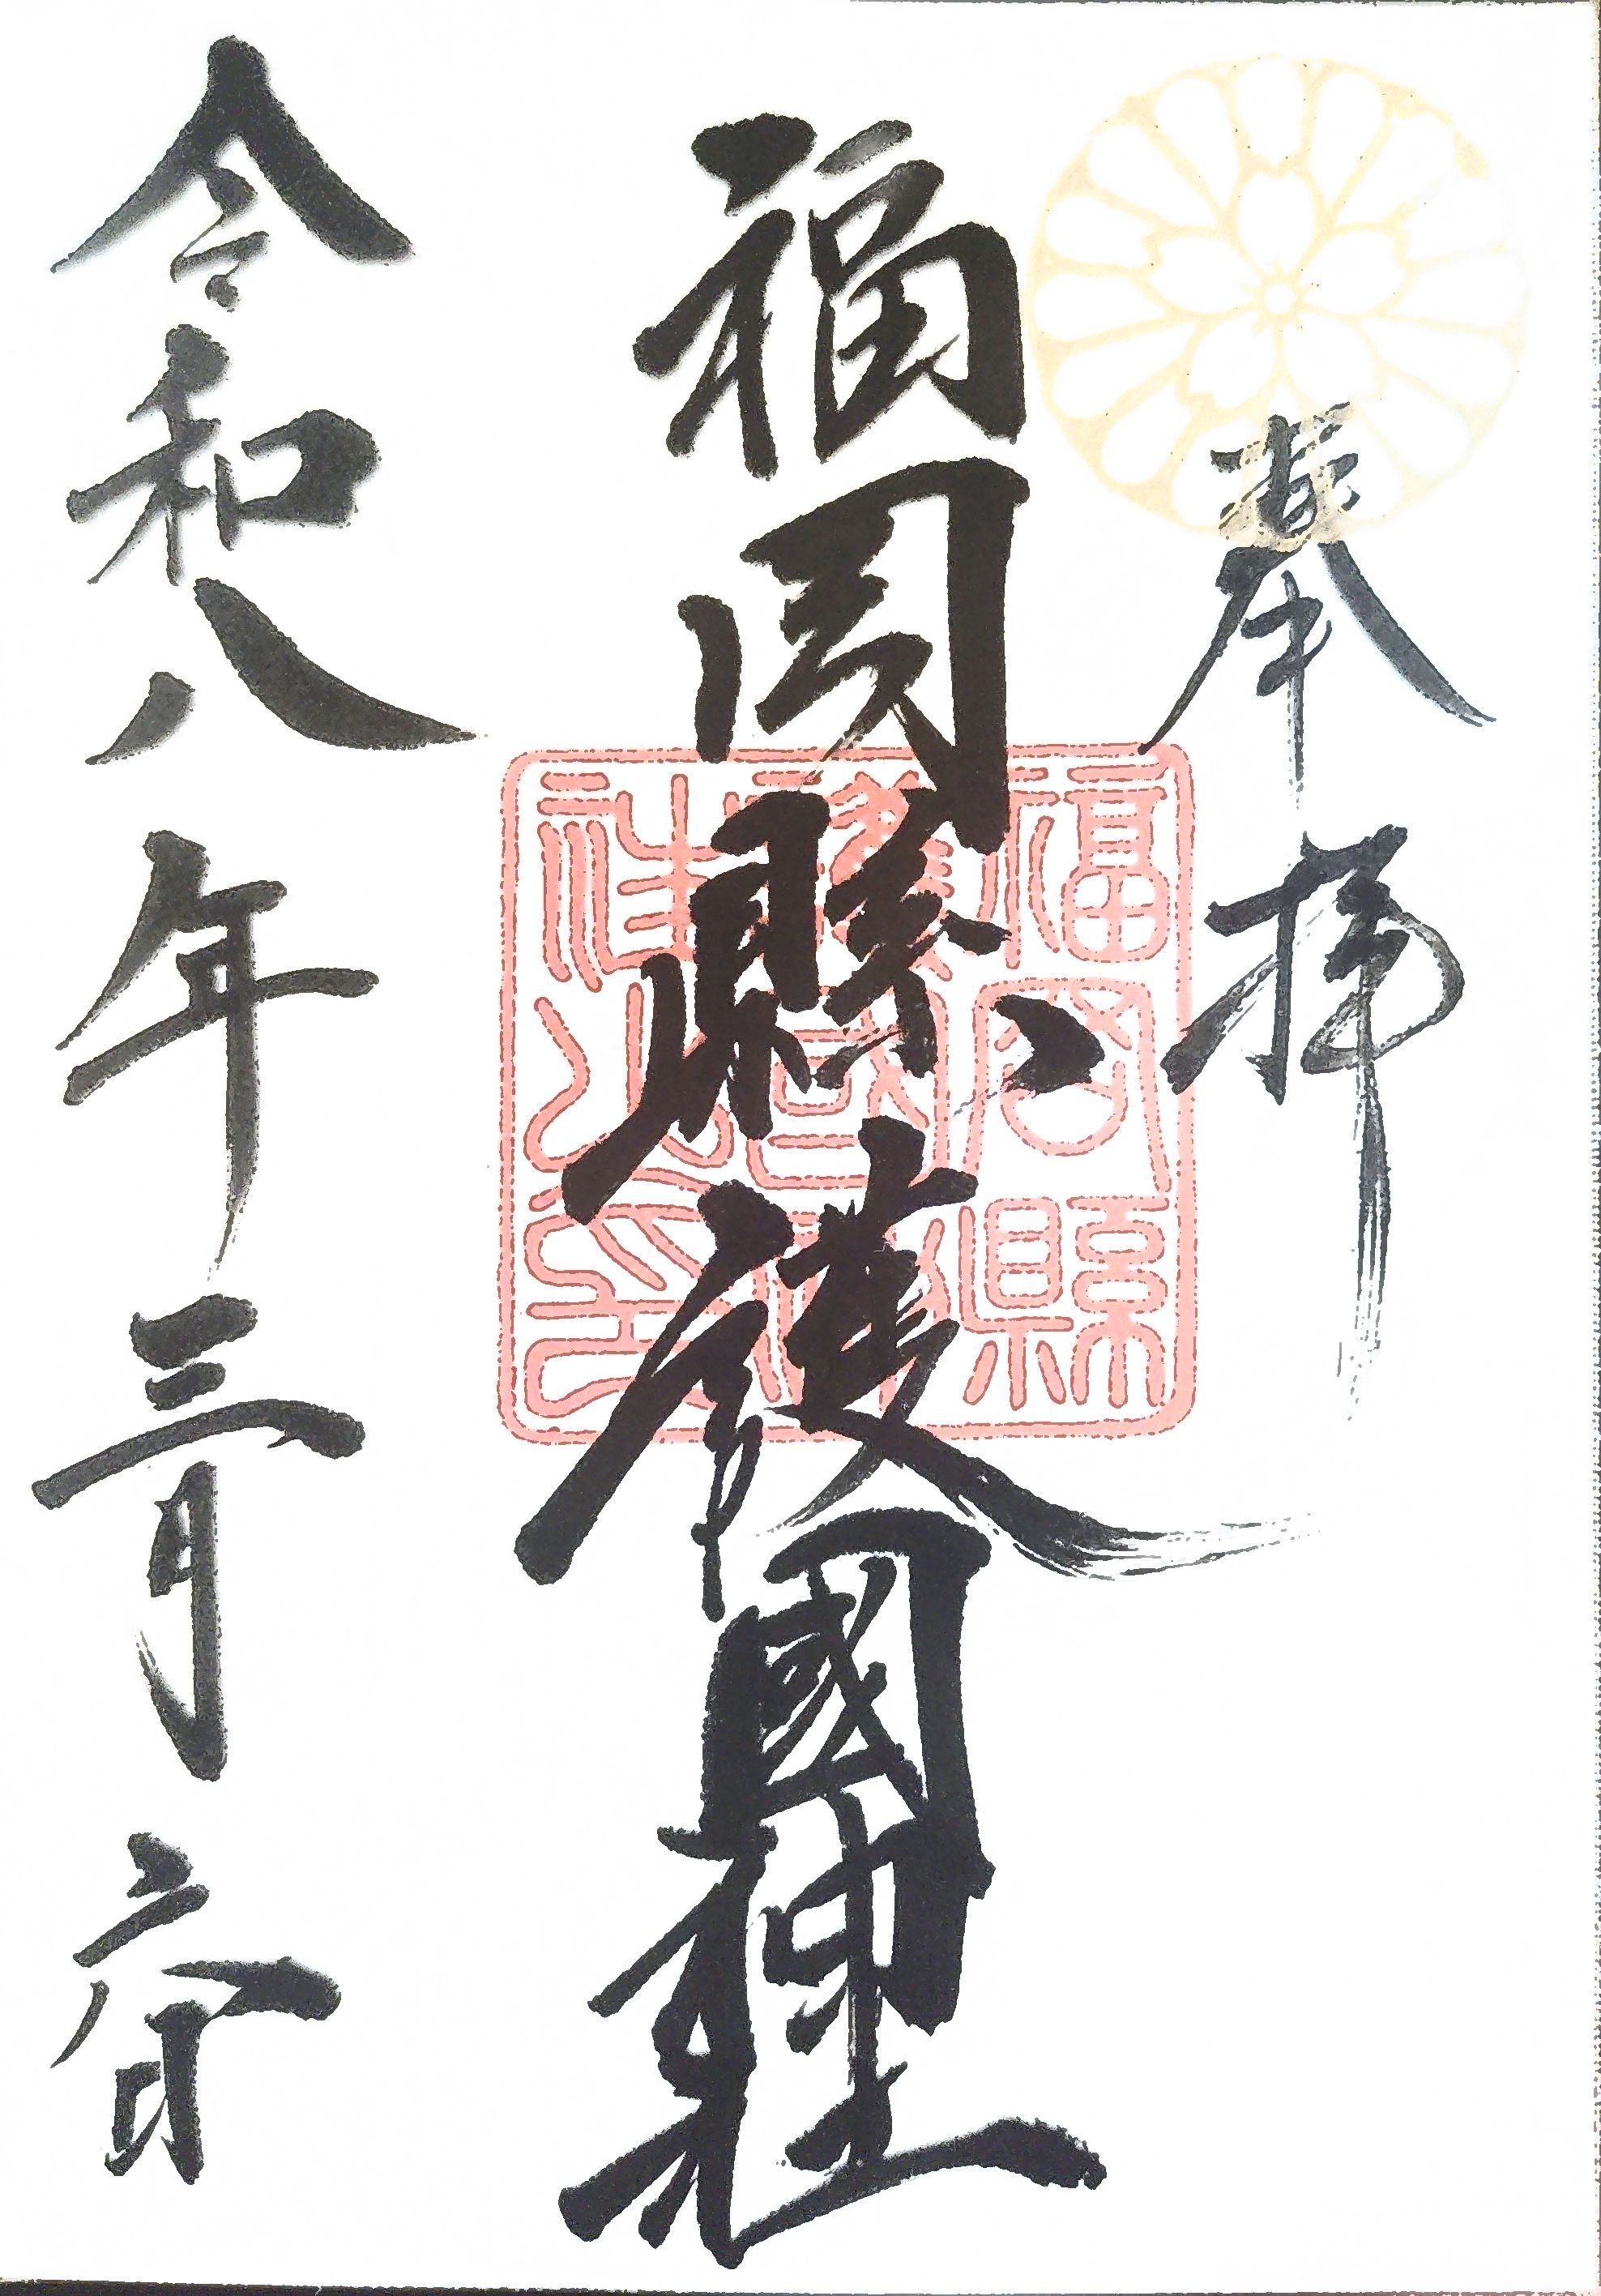 奉拝
福岡縣護國神社
令和八年三月六日
福岡縣
護國神
社之印